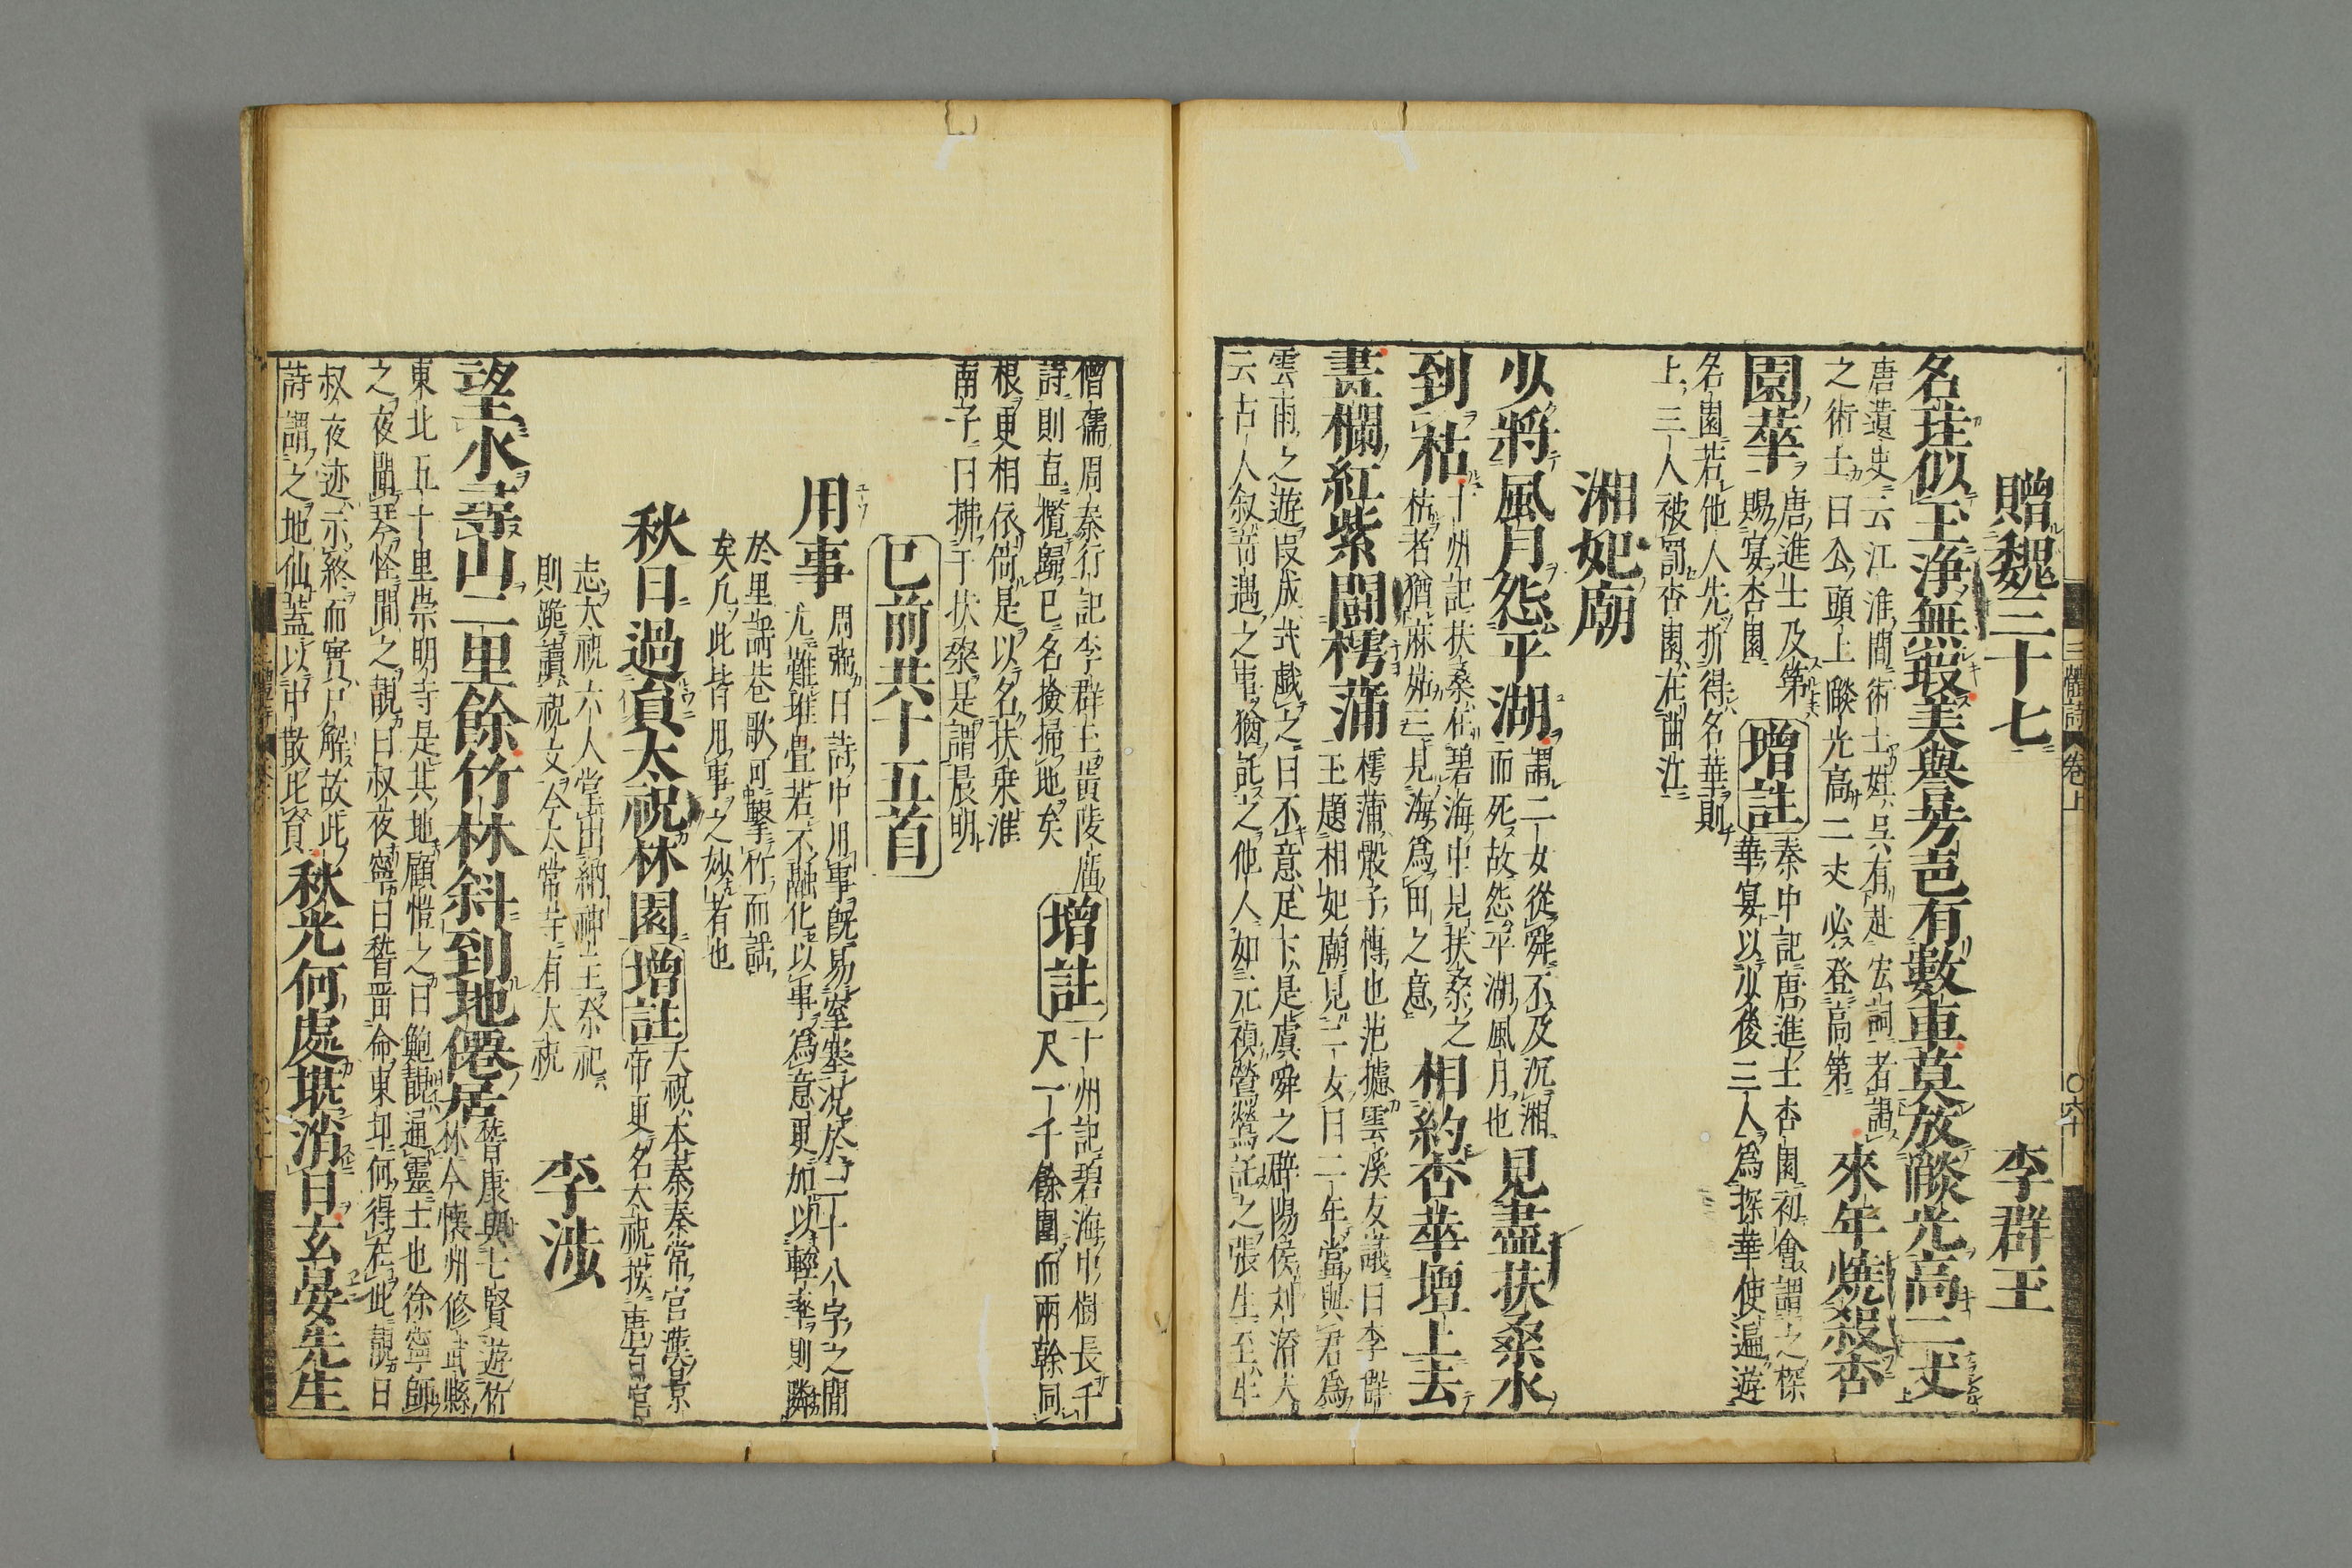 贈魏三十七　李群玉
名珪似玉浄無瑕美與芳邑有數車莫放燄光高二丈
唐遺史云江淮間術士姓呉有赴宏詞者謁
之術士曰公頭上燄光高二丈必登高第
來年燒殺杏
園華
唐進士及第
賜宴杏園
増註
秦中記唐進士杏園初會謂之探
華宴以少俊二人為探華使遍遊
名園若他人先折得名華則
上三人被罰杏園在曲江
湘妃廟
少將風月怨平湖
謂二女從舜不及沉湘
而死故怨平湖風月也
見盡扶桑水
到枯
十州記扶桑在碧海中見扶桑之
枯者猶麻姑三見海為田之意
相約杏華壇上去
畫欄紅紫鬪樗蒲
樗蒲骰子博也范攄雲溪友議曰李群
玉題相妃廟見二女曰二年當與君為
雲雨之遊段成式戯之曰不意足下是虞舜之辟陽侯刘済夫
云古人叙奇遇之事猶託之他人如元稹鶯鶯託之張生至牛
三體詩　卷上
僧儒周秦行記李群玉黄陵廟
詩則直攬歸己名撿掃地矣
増註
十州記碧海中樹長千
尺一千餘圍而兩幹同
根更相依倚是以名扶桒淮
南子曰拂于扶桑是謂晨明
已前共十五首
用事
周弼曰詩中用事既易窒塞況於二十八字之間
尤難堆畳若不融化以事為意更加以輕率則隣
於里謡巷歌可撃竹而謡
矣凡此皆用事之妙者也
秋日過員太祝林園
増註
大祝本秦奉常官漢景
帝更名太祝按唐百官
志太祝六人掌出納神主祭祀
則跪讀祝文今太常寺有大祝
李渉
望水尋山二里餘竹林斜到地僊居
嵆康與七賢遊竹
林今懐州修武縣
東北五十里崇明寺是其地顧愷之曰鮑靚通靈士也徐寧師
之夜聞琴怪問之靚曰叔夜寧曰嵆昔命東卭何得在此靚曰
叔夜迹示終而實尸解故此
詩謂之地仙蓋以中散比育
秋光何處堪消日玄晏先生